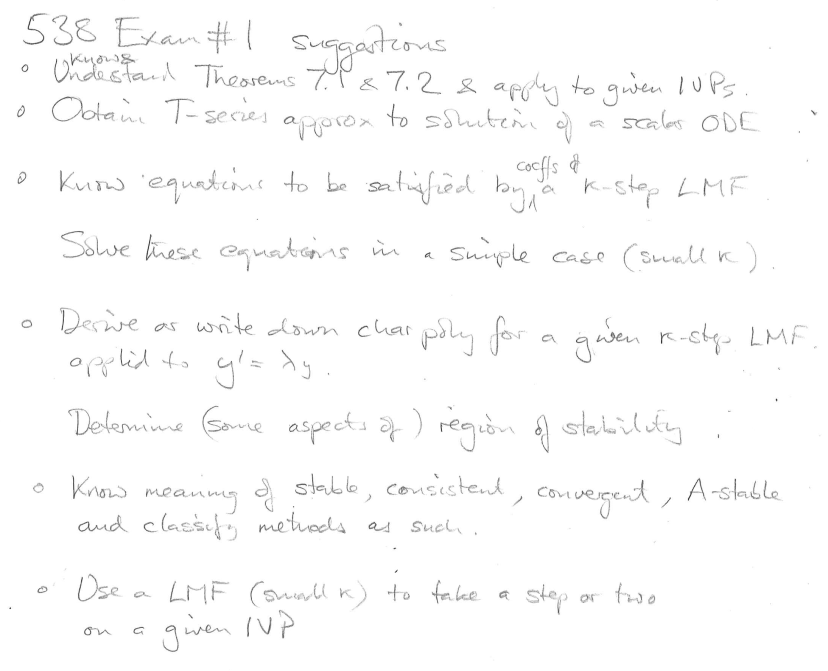 538 Exam #1 suggestions
know &
° Undestand Theorems 7.1 & 7.2 & apply to given IVPs.
° Obtain T-series approx to solution of a scalar ODE
° Know equations to be satisfied by coeffs of a k-step LMF
Solve these equations in a simple case (small k).
° Derive or write down char poly for a given k-step LMF.
applied to y' = λy.
Determine (some aspects of) region of stability.
° Know meaning of stable, consistent, convergent, A-stable
and classify methods as such.
° Use a LMF (small k) to take a step or two
on a given IVP